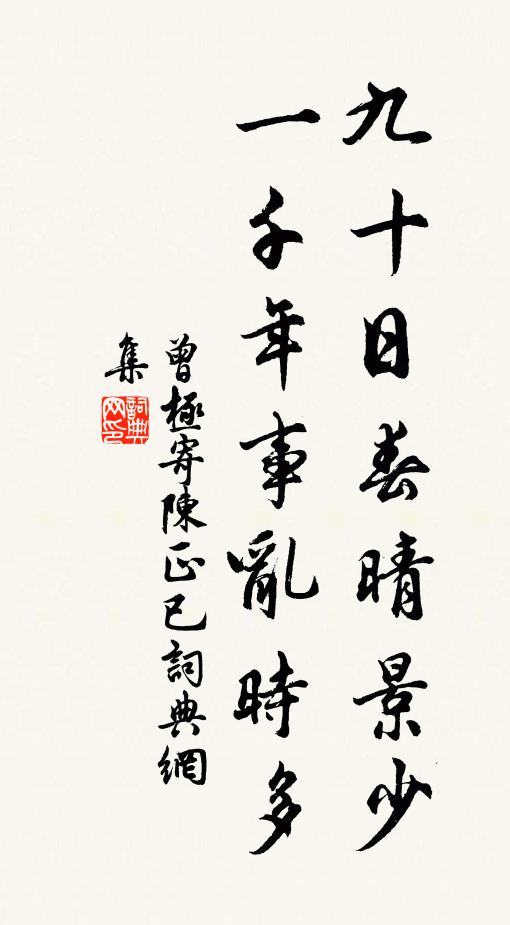 九十日春晴景少
一千年事亂時多
曾極寄陳正己詞典網
集
詞典
网印